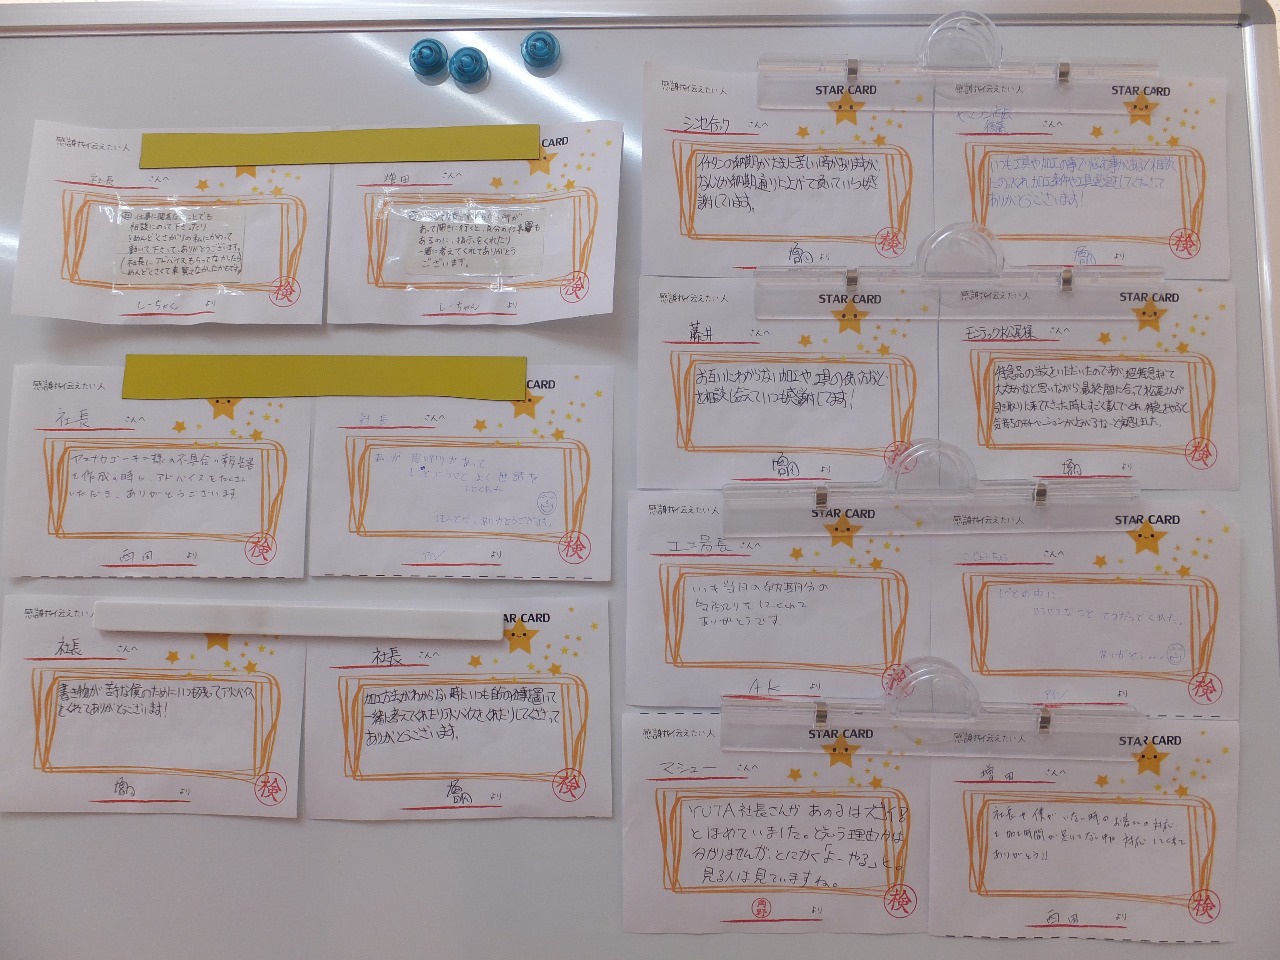 感謝を伝えたい人
CARD
社長 さんへ
仕事に関することでも
相談にのって下さったり
めんどくさがりの私にかわって
動いて下さって、ありがとうございます。
社長に、アドバイスもらってなかったら
めんどくさくて
検
しーちゃん より
増田 さんへ
所が
あって聞きに行くと、自分の仕事も
あるのに、指示をくれたり
一緒に考えてくれてありがとう
ございます。
検
しーちゃん より
感謝を伝えたい人
CARD
社長 さんへ
様の不具合の報告書
を作成の時に、アドバイスをたくさん
いただき、ありがとうございます
検
西田 より
社長 さんへ
よく世話を
してくれた
ほんとに、ありがとうございます。
検
アイン より
感謝を伝えたい人
STAR CARD
社長 さんへ
書き物が苦手な僕のためにいつも残ってアドバイス
をくれてありがとうございます!
検
増田 より
社長 さんへ
加工方法がわからない時にいつも自分の仕事を置いて
一緒に考えてくれたりアドバイスをくれたりしてくださって
ありがとうございます。
検
増田 より
感謝を伝えたい人
STAR CARD
さんへ
イナタンの納期が大変に苦しい時がありますが、
なんとか納期通りに上げて頂いていつも感
謝しています。
検
増田 より
感謝を伝えたい人
STAR CARD
さんへ
いつも工具や加工の事で
にのってくれ、加工条件や工具を
ありがとうございます!
検
より
感謝を伝えたい人
STAR CARD
藤井 さんへ
お互いにわからない加工や工具の使い方などを
相談し合えていつも感謝してます!
検
増田 より
感謝を伝えたい人
STAR CARD
モンテック松尾様 さんへ
大丈夫かなと思いながら最終日に合って松尾さんが
引き取りに来て下さった時にすごく喜んでくれ
気持ちのモチベーションが上がるなーと実感しました。
検
増田 より
感謝を伝えたい人
STAR CARD
工場長 さんへ
いつも当日の納期分の
段取りをしてくれて
ありがとうです
検
AK より
感謝を伝えたい人
STAR CARD
こうじょうちょう さんへ
しごとの中に、
いろいろなこと てつだってくれた。
ありがとう....
検
アイン より
感謝を伝えたい人
STAR CARD
マシュー さんへ
YUTA社長さんが あの子はスゴイ!
とほめていました。どういう理由かは
分かりませんが、とにかく「よーやる」と。
見る人は見ていますね。
角野 より
検
感謝を伝えたい人
STAR CARD
増田 さんへ
社長や僕がいない時のお客様の対応
を加工時間が足りてない中 対応してくれて
ありがとう!!
検
西田 より